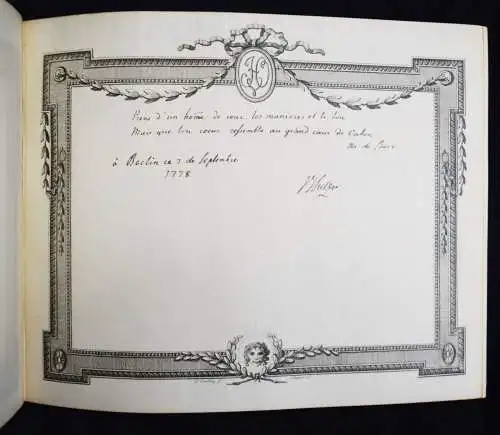 H
Prens d'un homme de cour les manieres et le ton
Mais que ton coeur ressemble au grand coeur de
à Berlin ce 7 de Septembre
1778